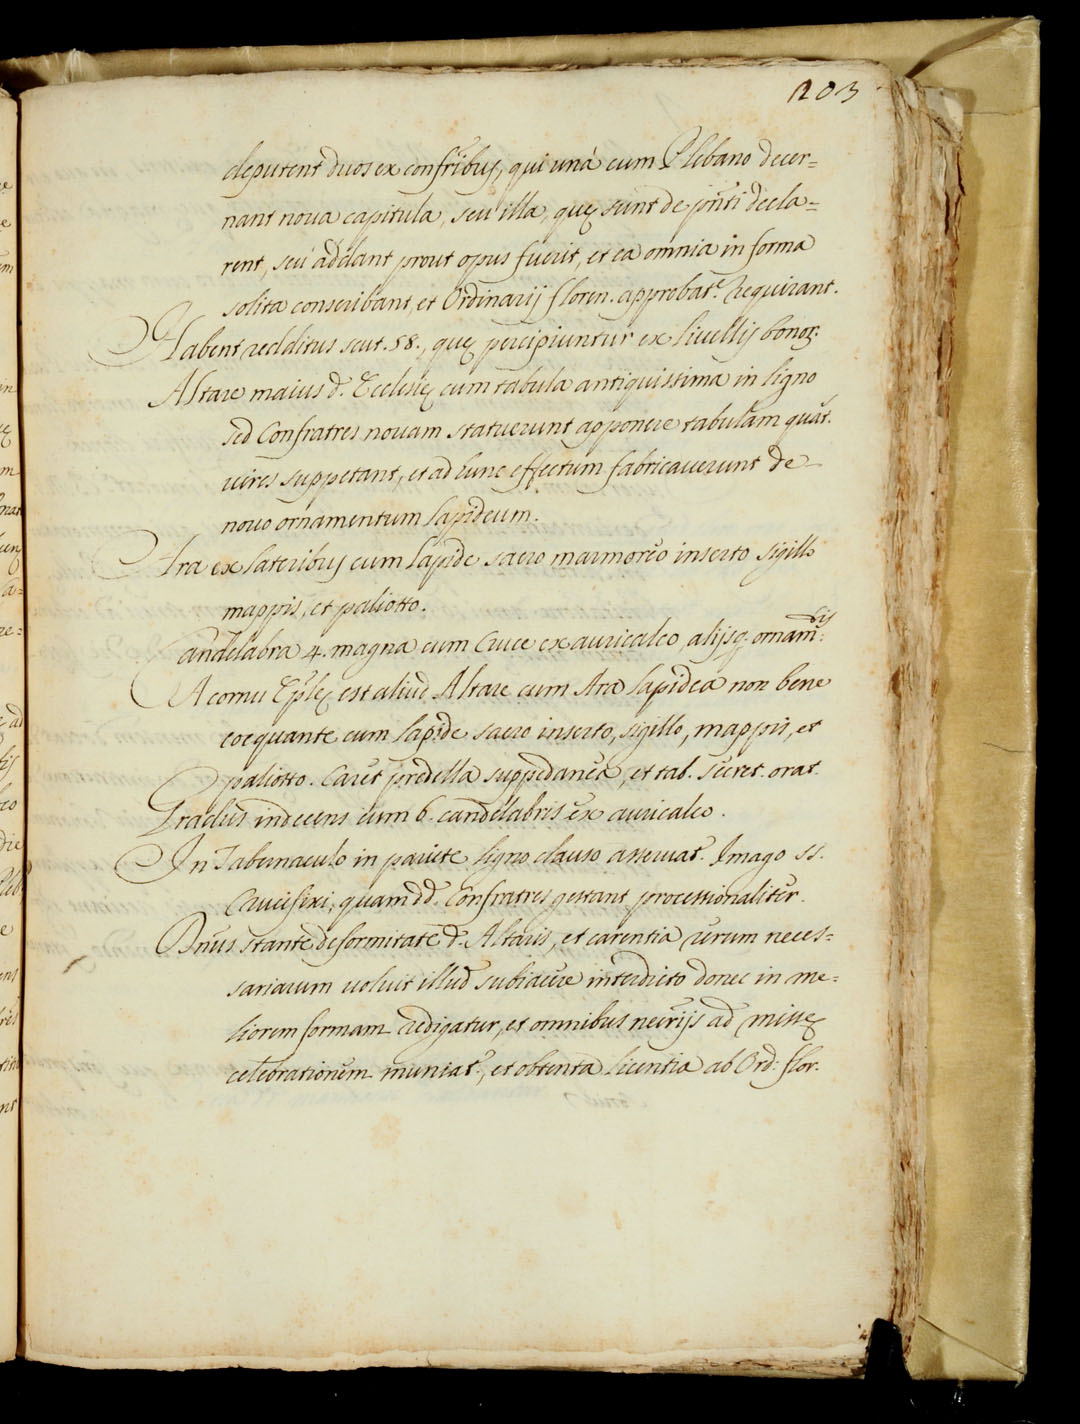 203
deputent duos ex confr̃ibus, qui unà cum Plebano decer=
nant nova capitula, seu illa, quę sunt de pñti decla=
rent, seù addant prout opus fuerit, et ea omnia in forma
solita conscribant, et Ordinarij floren. approbat.ᵉ requirant.
Habent redditus scut. 58., quę percipiuntur ex livellis bonoꝝ.
Altare maius d. Ecclesię cum tabula antiquissima in ligno
sed Confratres novam statuerunt apponere tabulam quãt.
vires suppetant, et ad hunc effectum fabricaverunt de
novo ornamentum lapideum.
Ara ex lateribus cum lapide sacro marmoreo inserto sigillo
mappis, et paliotto.
Candelabra 4. magna cum Cruce ex auricalco, alijsq. ornam:tis
A cornu Ep̃lę est aliud Altare cum Ara lapidea non bene
coequante cum lapide sacro inserto, sigillo, mappis, et
paliotto. Caret predella suppedanea, et tab. secret. orat.
Gradus indecens cum 6. candelabris ex auricalco.
In Tabernaculo in pariete ligno clauso asservat. Imago SS.
Crucifixi, quam dd. Confratres gestant processionaliter.
Dñus stante deformitate d. Altaris, et carentia rerum neces=
sariarum voluit illud subiacere interdicto donec in me=
liorem formam redigatur, et omnibus nec̃rijs ad missę
celebrationem muniat.ʳ, et obtenta licentia ab Ord: flor.